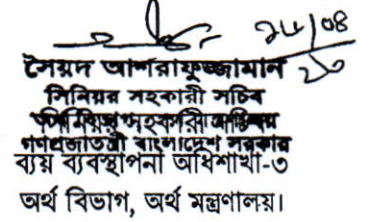 ২৮/০৪
২০
সৈয়দ আশরাফুজ্জামান
সিনিয়র সহকারী সচিব
সিনিয়র সহকারী সচিব
গণপ্রজাতন্ত্রী বাংলাদেশ সরকার
ব্যয় ব্যবস্থাপনা অধিশাখা-৩
অর্থ বিভাগ, অর্থ মন্ত্রণালয়।